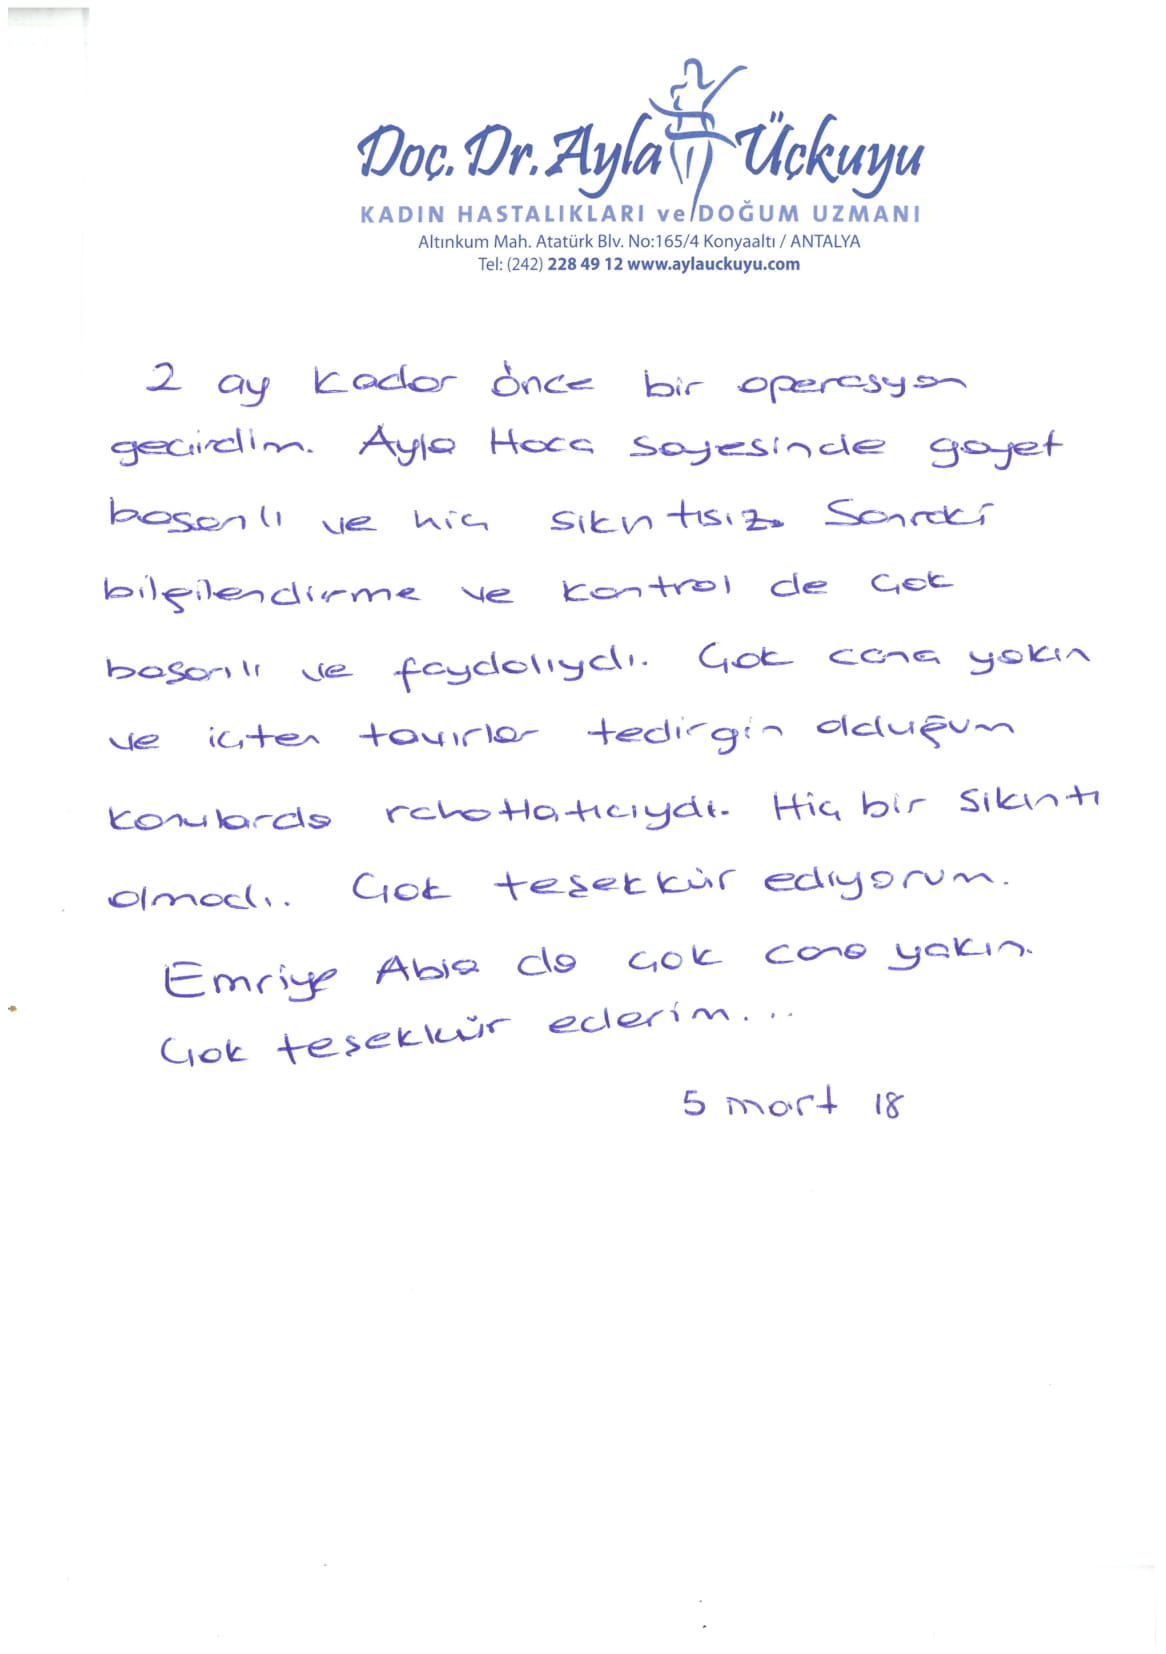 Doç. Dr. Ayla Üçkuyu
KADIN HASTALIKLARI ve DOĞUM UZMANI
Altınkum Mah. Atatürk Blv. No:165/4 Konyaaltı / ANTALYA
Tel: (242) 228 49 12 www.aylauckuyu.com
2 ay kadar önce bir operasyon
geçirdim. Ayla Hoca sayesinde gayet
başarılı ve hiç sıkıntısız. Sonraki
bilgilendirme ve kontrol de çok
başarılı ve faydalıydı. Çok cana yakın
ve içten tavırlar tedirgin olduğum
konularda rahatlatıcıydı. Hiç bir sıkıntı
olmadı. Çok teşekkür ediyorum.
Emriye Abla da çok cana yakın.
Çok teşekkür ederim...
5 mart 18